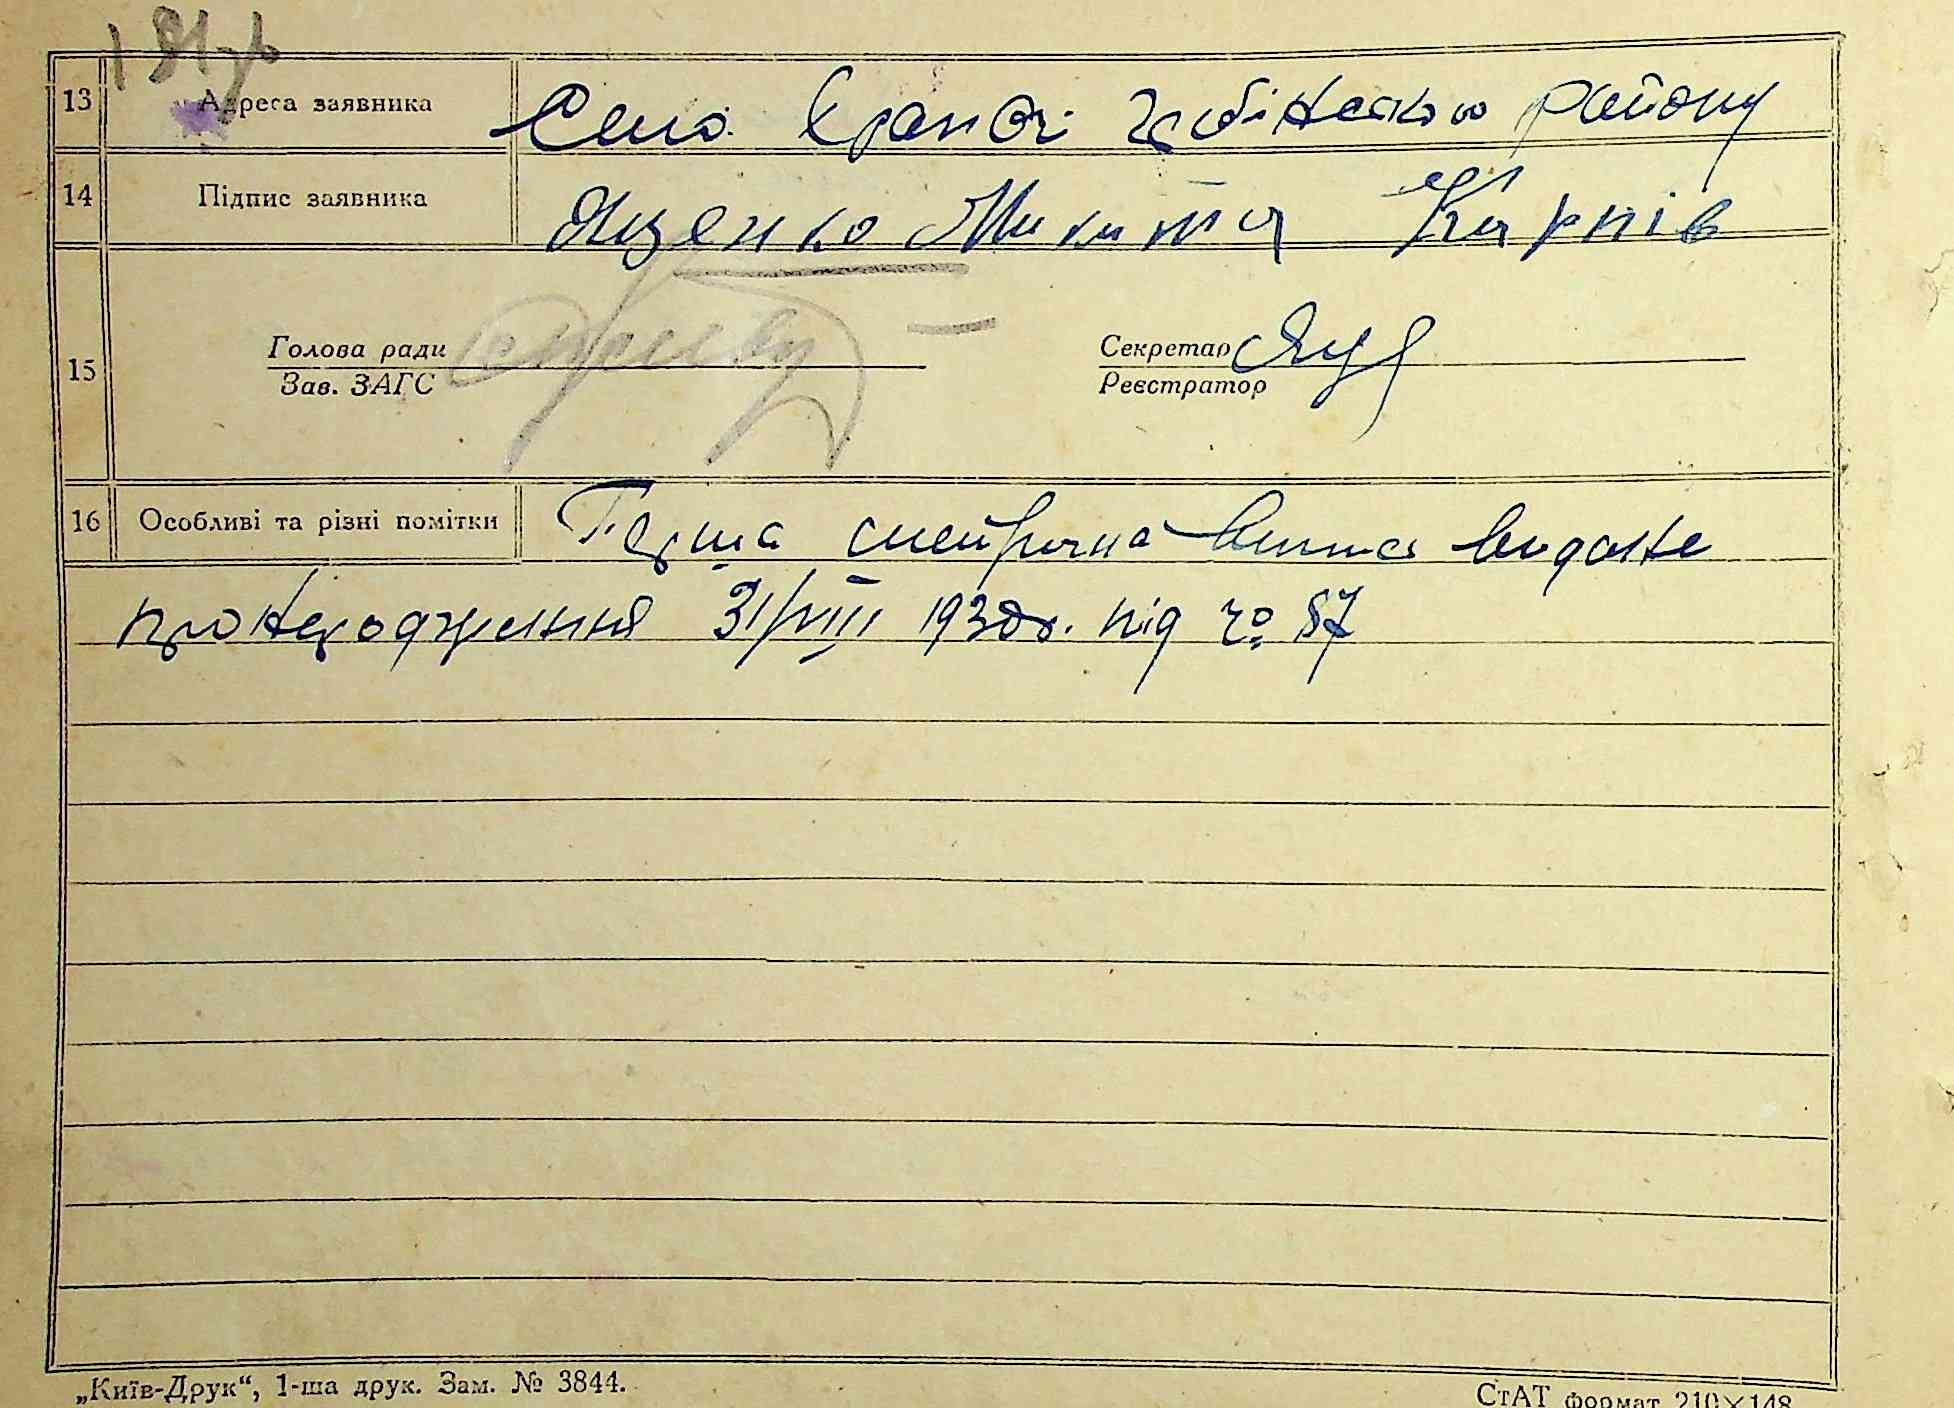 13 Адреса заявника Село району
14 Підпис заявника Яценко Микита Карпів
15 Голова ради Секретар Яц
Зав. ЗАГС Реєстратор
16 Особливі та різні помітки Перша метрична випись видана
про народження 31/VIII 1930р. під чо 87
„Київ-Друк“, 1-ша друк. Зам. № 3844.
СтАТ формат 210×148